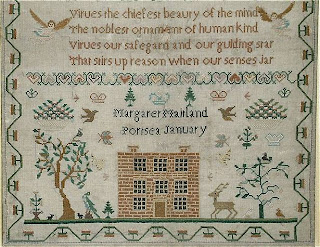 Virues the chiefest beaury of the mind
The noblest ornament of human kind
Virues our safegard and our guiding star
That stirs up reason when our senses Jar
Margaret Maitland
Porisea January